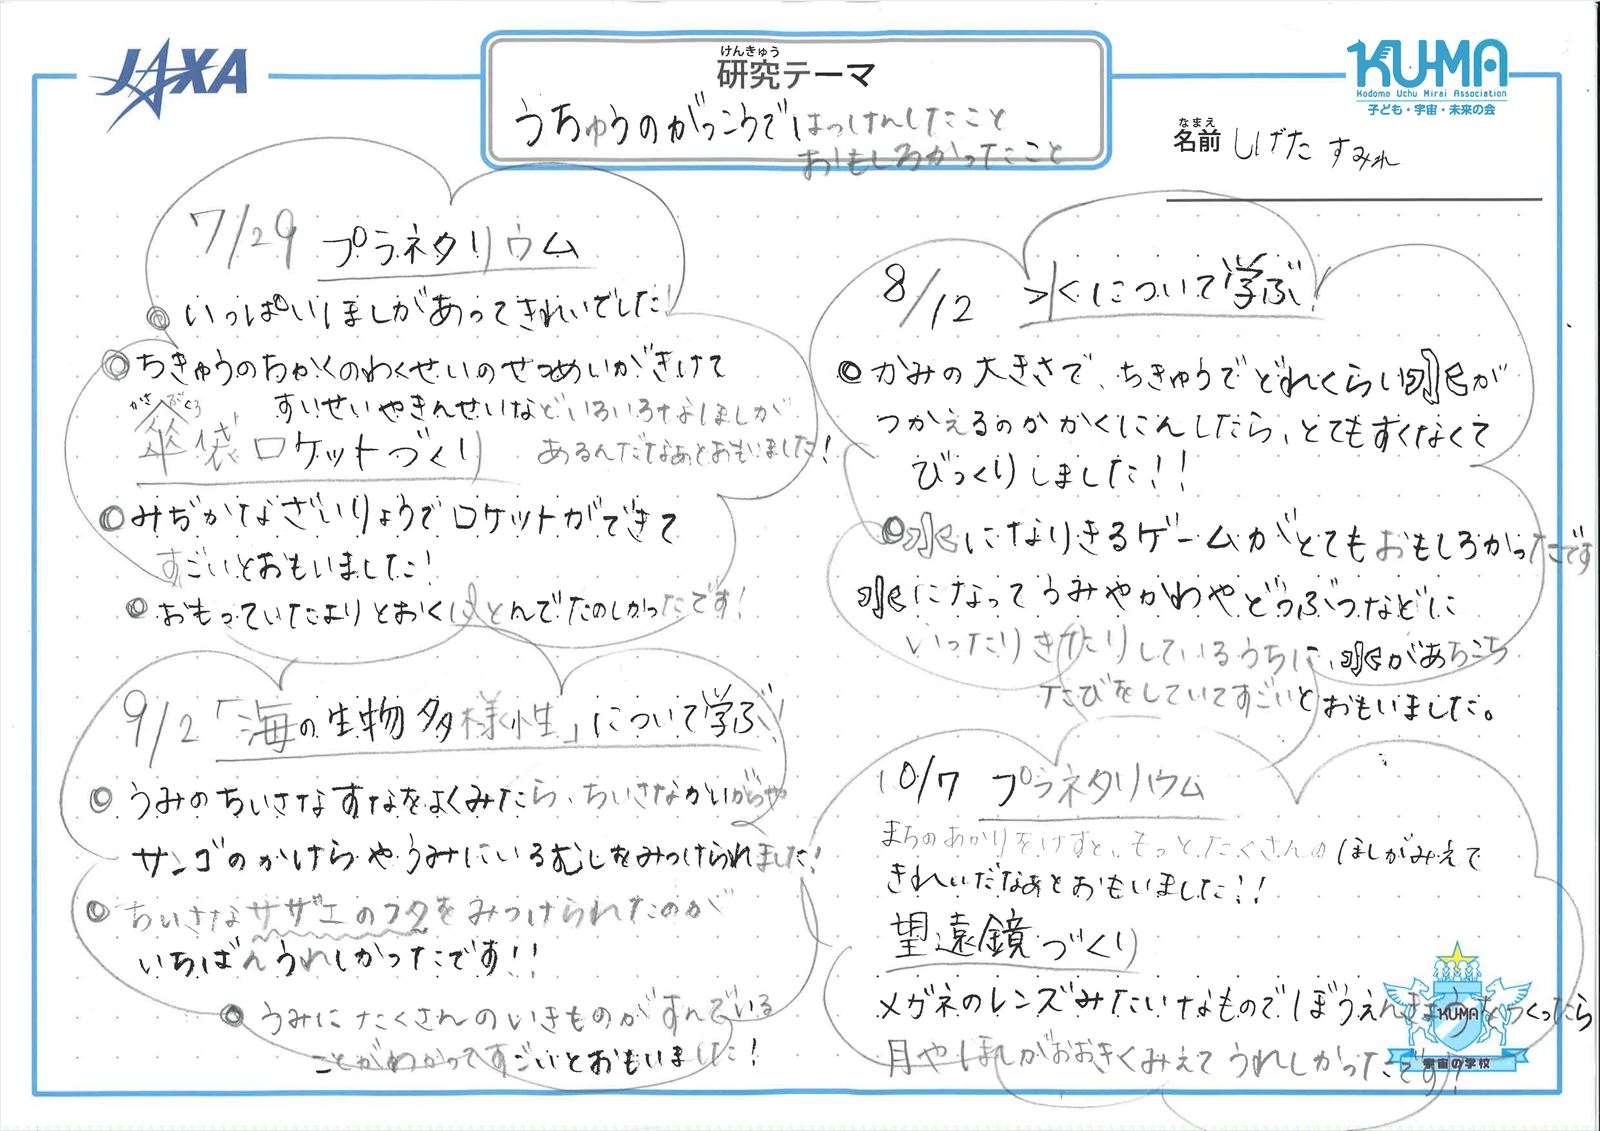 JAXA
けんきゅう
研究テーマ
うちゅうのがっこうではっけんしたこと
おもしろかったこと
KUMA
Kodomo Uchu Mirai Association
子ども・宇宙・未来の会
なまえ
名前 しげた すみれ
7/29 プラネタリウム
いっぱいほしがあってきれいでした!
ちきゅうのちかくのわくせいのせつめいがきけて
すいせいやきんせいなどいろいろなほしが
あるんだなあとおもいました!
かさ ぶくろ
傘袋ロケットづくり
みぢかなざいりょうでロケットができて
すごいとおもいました!
おもっていたよりとおくはとんでたのしかったです!
8/12 水について学ぶ
かみの大きさで、ちきゅうでどれくらい水が
つかえるのかかくにんしたら、とてもすくなくて
びっくりしました!!
水になりきるゲームがとてもおもしろかったです
水になってうみやかわやどうぶつなどに
いったりきたりしているうちに、水があちこち
たびをしていてすごいとおもいました。
9/2 「海の生物多様性」について学ぶ
うみのちいさなすなをよくみたら、ちいさなかいがらや
サンゴのかけらやうみにいるむしをみつけられました!
ちいさなサザエのフタをみつけられたのが
いちばんうれしかったです!!
うみにたくさんのいきものがすんでいる
ことがわかってすごいとおもいました!
10/7 プラネタリウム
まちのあかりをけすと、もっとたくさんのほしがみえて
きれいだなあとおもいました!!
望遠鏡づくり
メガネのレンズみたいなものでぼうえんきょうをつくったら
月やほしがおおきくみえてうれしかったです!
KUMA
宇宙の学校